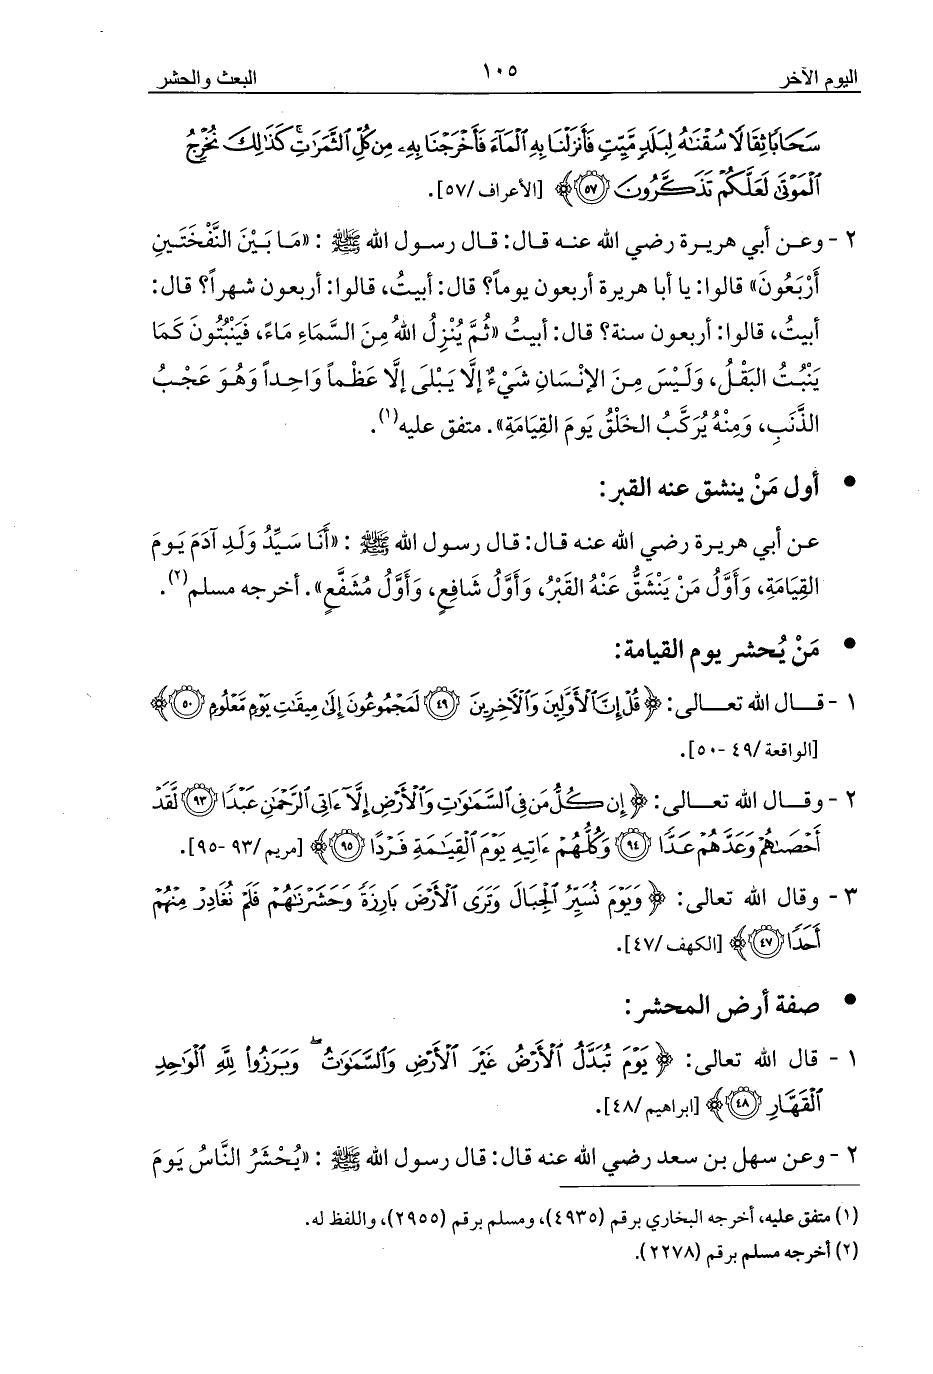 اليوم الآخر ١٠٥ البعث والحشر
سَحَابًا ثِقَالًا سُقْنَٰهُ لِبَلَدٍ مَّيِّتٍ فَأَنزَلْنَا بِهِ ٱلْمَآءَ فَأَخْرَجْنَا بِهِۦ مِن كُلِّ ٱلثَّمَرَٰتِ ۚ كَذَٰلِكَ نُخْرِجُ
ٱلْمَوْتَىٰ لَعَلَّكُمْ تَذَكَّرُونَ ٥٧﴾ [الأعراف/٥٧].
٢ - وعن أبي هريرة رضي الله عنه قال: قال رسول الله ﷺ: «مَا بَيْنَ النَّفْخَتَينِ
أَرْبَعُونَ» قالوا: يا أبا هريرة أربعون يوماً؟ قال: أبيتُ، قالوا: أربعون شهراً؟ قال:
أبيتُ، قالوا: أربعون سنة؟ قال: أبيتُ «ثُمَّ يُنْزِلُ اللهُ مِنَ السَّمَاءِ مَاءً، فَيَنْبُتُونَ كَمَا
يَنْبُتُ البَقْلُ، وَلَيْسَ مِنَ الإنْسَانِ شَيْءٌ إلَّا يَبْلَى إلَّا عَظْماً وَاحِداً وَهُوَ عَجْبُ
الذَّنَبِ، وَمِنْهُ يُرَكَّبُ الخَلْقُ يَومَ القِيَامَةِ». متفق عليه(١).
• أول مَنْ ينشق عنه القبر:
عن أبي هريرة رضي الله عنه قال: قال رسول الله ﷺ: «أَنَا سَيِّدُ وَلَدِ آدَمَ يَومَ
القِيَامَةِ، وَأَوَّلُ مَنْ يَنْشَقُّ عَنْهُ القَبْرُ، وَأَوَّلُ شَافِعٍ، وَأَوَّلُ مُشَفَّعٍ». أخرجه مسلم(٢).
• مَنْ يُحشر يوم القيامة:
١ - قال الله تعالى: ﴿قُلْ إِنَّ ٱلْأَوَّلِينَ وَٱلْآخِرِينَ ٤٩ لَمَجْمُوعُونَ إِلَىٰ مِيقَٰتِ يَوْمٍ مَّعْلُومٍ ٥٠﴾
[الواقعة/٤٩ -٥٠].
٢ - وقال الله تعالى: ﴿إِن كُلُّ مَن فِى ٱلسَّمَٰوَٰتِ وَٱلْأَرْضِ إِلَّآ ءَاتِى ٱلرَّحْمَٰنِ عَبْدًا ٩٣ لَّقَدْ
أَحْصَىٰهُمْ وَعَدَّهُمْ عَدًّا ٩٤ وَكُلُّهُمْ ءَاتِيهِ يَوْمَ ٱلْقِيَٰمَةِ فَرْدًا ٩٥﴾ [مريم/٩٣ -٩٥].
٣ - وقال الله تعالى: ﴿وَيَوْمَ نُسَيِّرُ ٱلْجِبَالَ وَتَرَى ٱلْأَرْضَ بَارِزَةً وَحَشَرْنَٰهُمْ فَلَمْ نُغَادِرْ مِنْهُمْ
أَحَدًا ٤٧﴾ [الكهف/٤٧].
• صفة أرض المحشر:
١ - قال الله تعالى: ﴿يَوْمَ تُبَدَّلُ ٱلْأَرْضُ غَيْرَ ٱلْأَرْضِ وَٱلسَّمَٰوَٰتُ ۖ وَبَرَزُوا۟ لِلَّهِ ٱلْوَٰحِدِ
ٱلْقَهَّارِ ٤٨﴾ [ابراهيم/٤٨].
٢ - وعن سهل بن سعد رضي الله عنه قال: قال رسول الله ﷺ: «يُحْشَرُ النَّاسُ يَومَ
(١) متفق عليه، أخرجه البخاري برقم (٤٩٣٥)، ومسلم برقم (٢٩٥٥)، واللفظ له.
(٢) أخرجه مسلم برقم (٢٢٧٨).